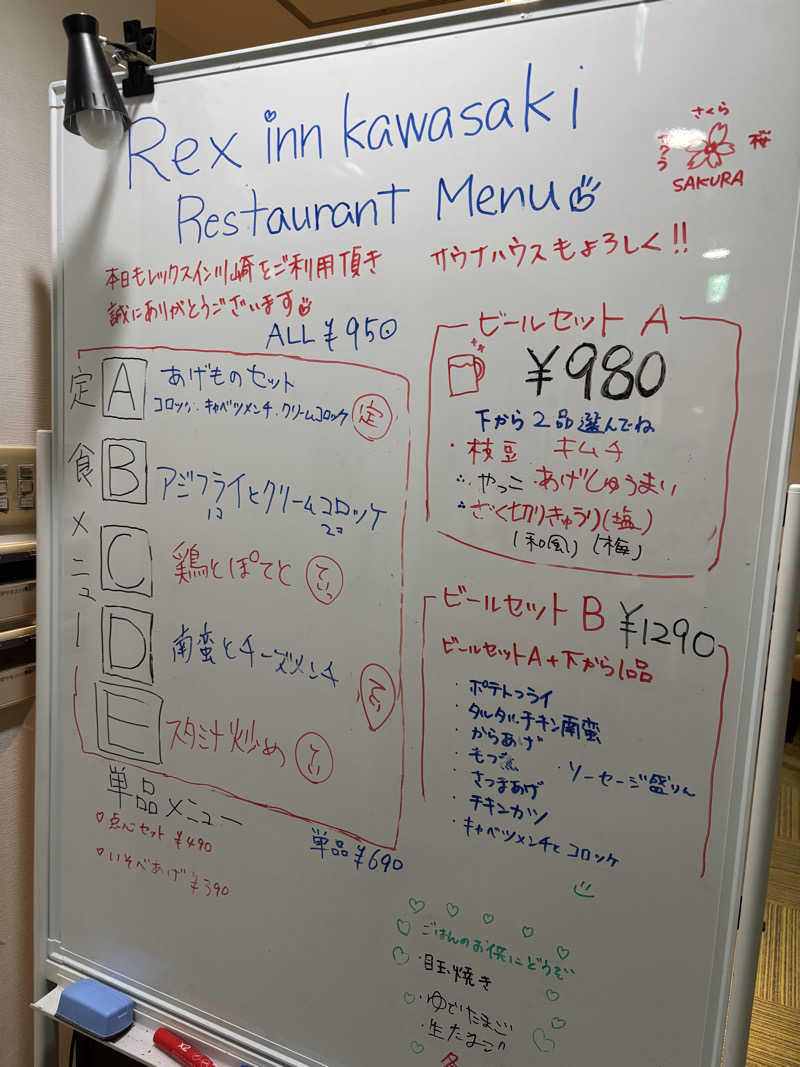 Rex inn kawasaki
Restaurant Menu
さくら
さくら
桜
SAKURA
本日もレックスイン川崎をご利用頂き
誠にありがとうございます
サウナハウスもよろしく!!
ALL ¥950
定食メニュー
A あげものセット
コロッケ・キャベツメンチ・クリームコロッケ 定
B アジフライとクリームコロッケ
1コ 2コ
C 鶏とぽてと
D 南蛮とチーズメンチ
E スタミナ炒め
単品 ¥690
単品メニュー
点心セット ¥490
いそべあげ ¥390
ビールセット A
¥980
下から2品選んでね
・枝豆 キムチ
やっこ ・あげしゅうまい
ざく切りきゅうり(塩)
(和風) (梅)
ビールセット B ¥1290
ビールセットA+下から1品
・ポテトフライ
・タルタルチキン南蛮
・からあげ
・もつ煮 ・ソーセージ盛り
・さつまあげ
・チキンカツ
・キャベツメンチとコロッケ
ごはんのお供にどうぞ
・目玉焼き
・ゆでたまご
・生たまご